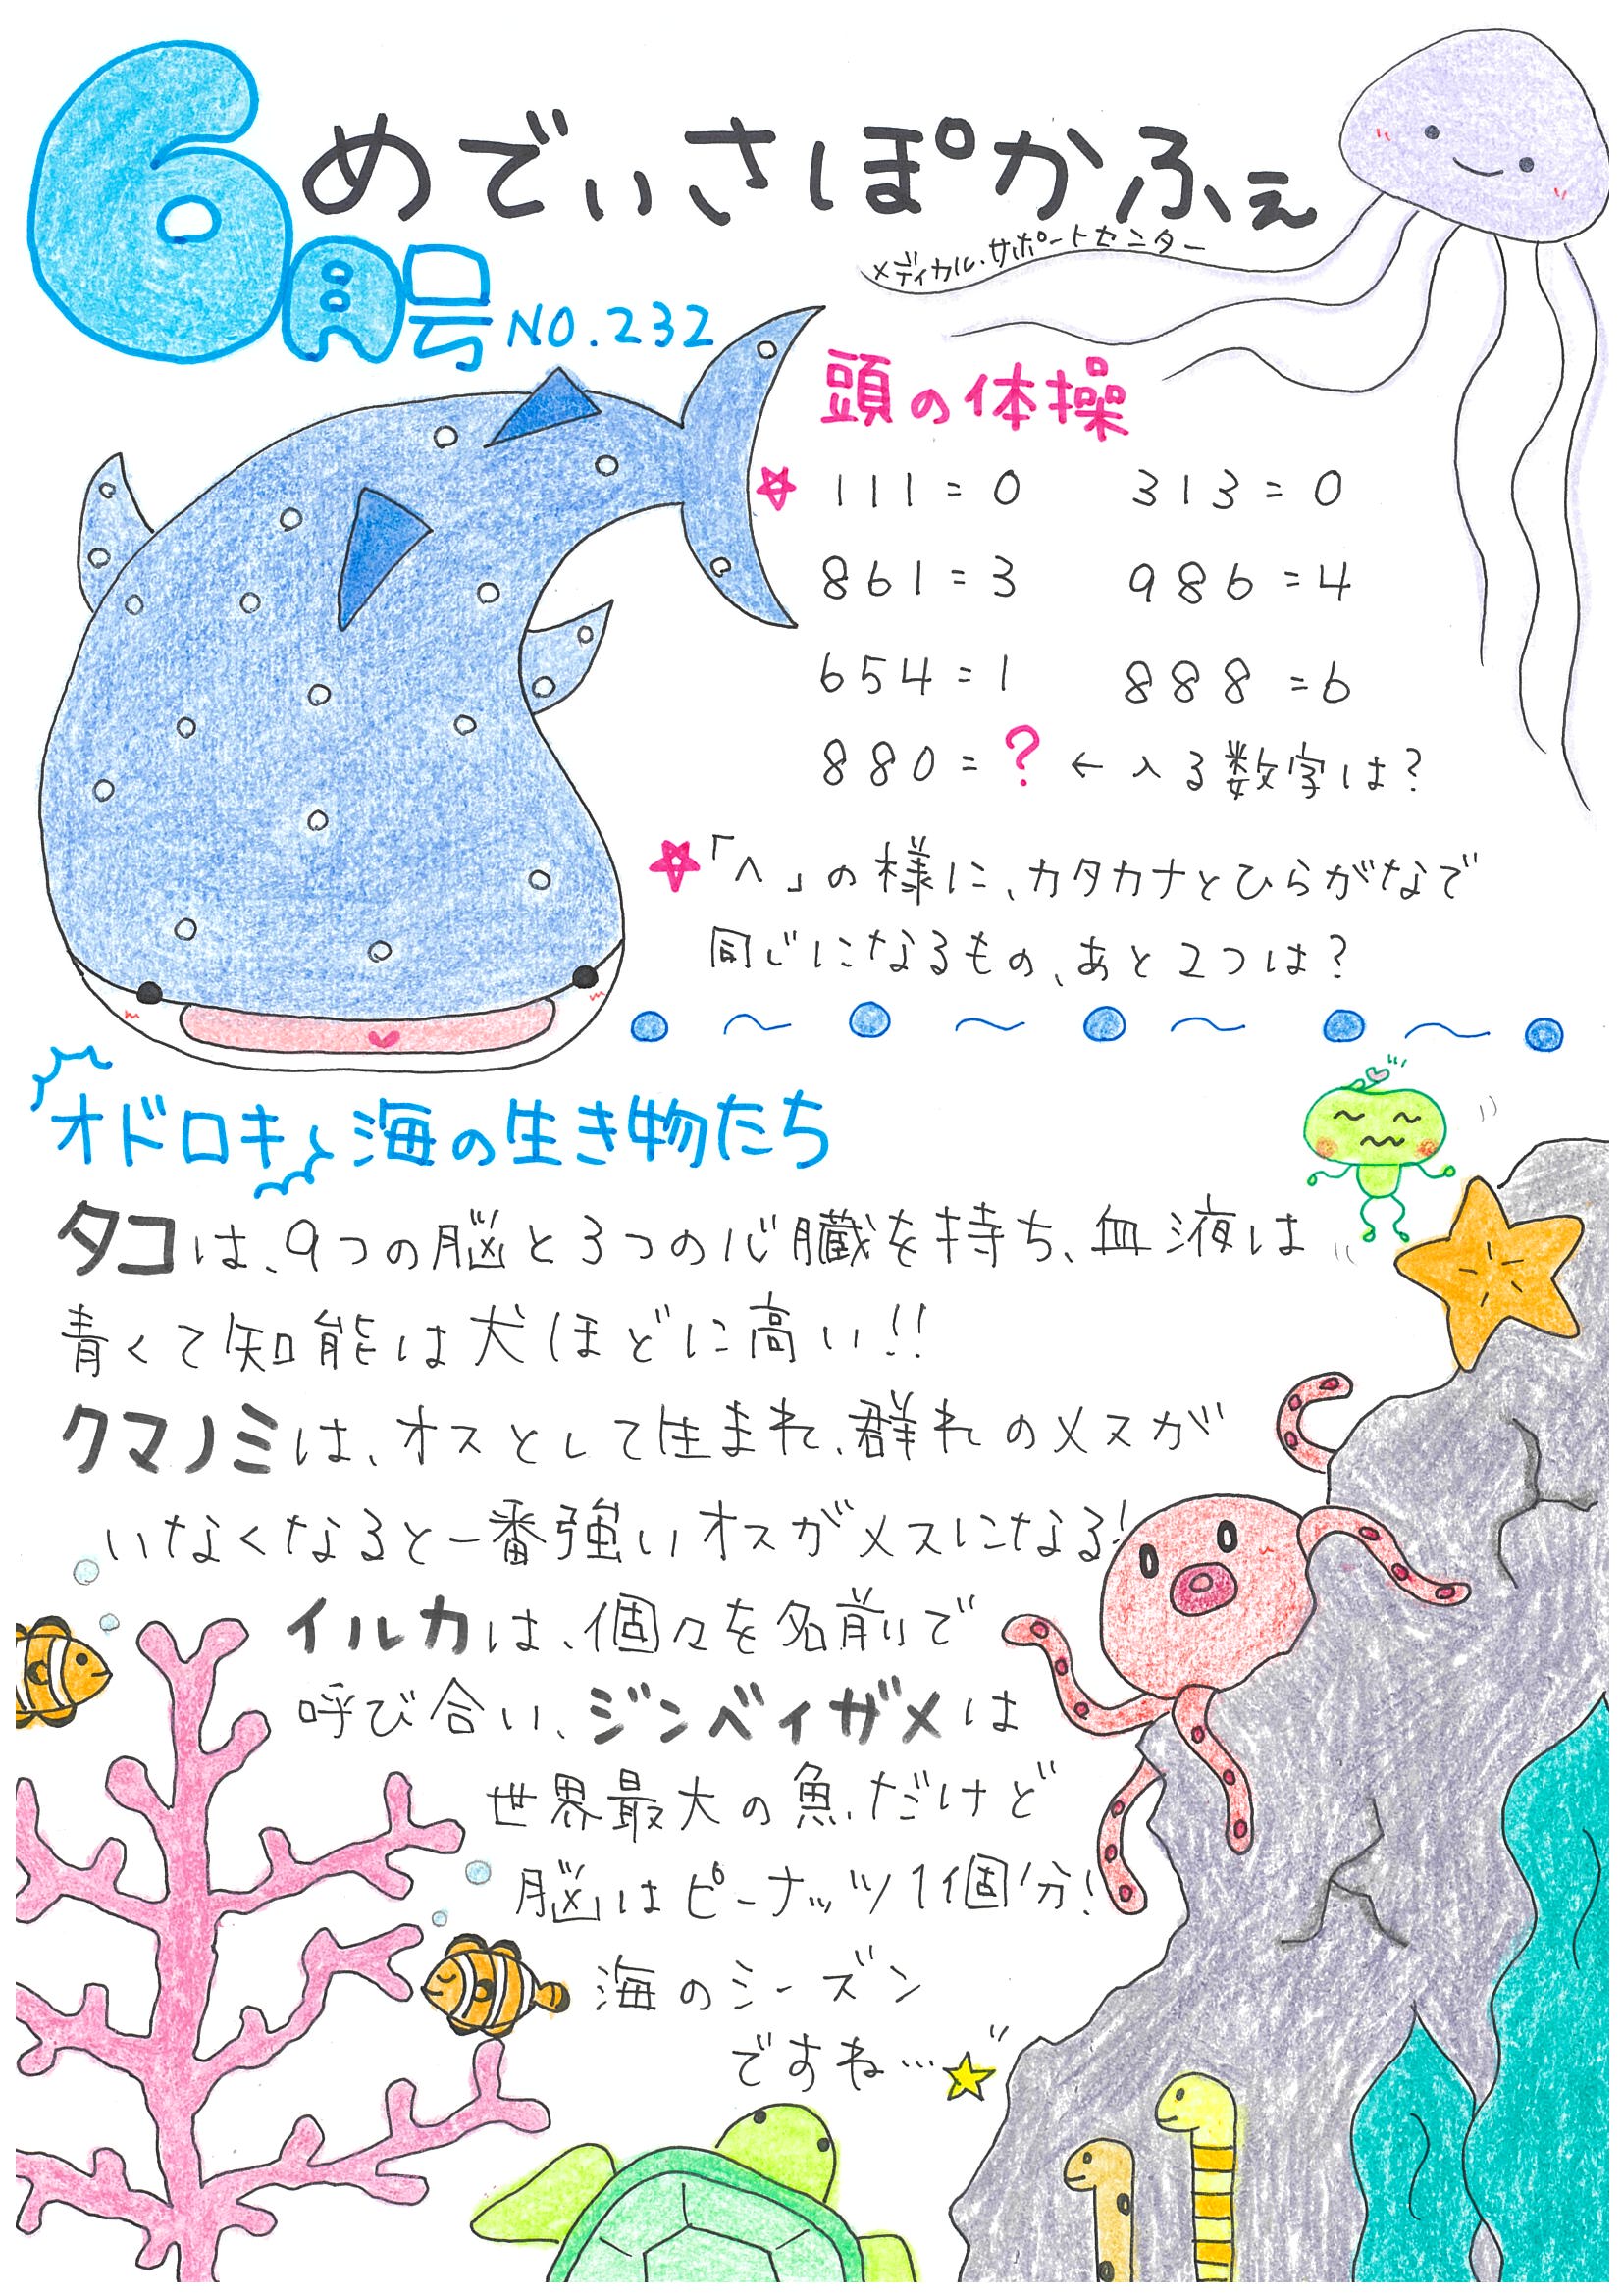 6月号
めでぃさぽかふぇ
メディカル・サポートセンター
NO.232
頭の体操
☆ 111=0 313=0
861=3 986=4
654=1 888=6
880=? ←入る数字は?
☆「へ」の様に、カタカナとひらがなで
同じになるもの、あと2つは?
オドロキ 海の生き物たち
タコは、9つの脳と3つの心臓を持ち、血液は
青くて知能は犬ほどに高い!!
クマノミは、オスとして生まれ、群れのメスが
いなくなると一番強いオスがメスになる!
イルカは、個々を名前で
呼び合い、ジンベイザメは
世界最大の魚だけど
脳はピーナッツ1個分!
海のシーズン
ですね…